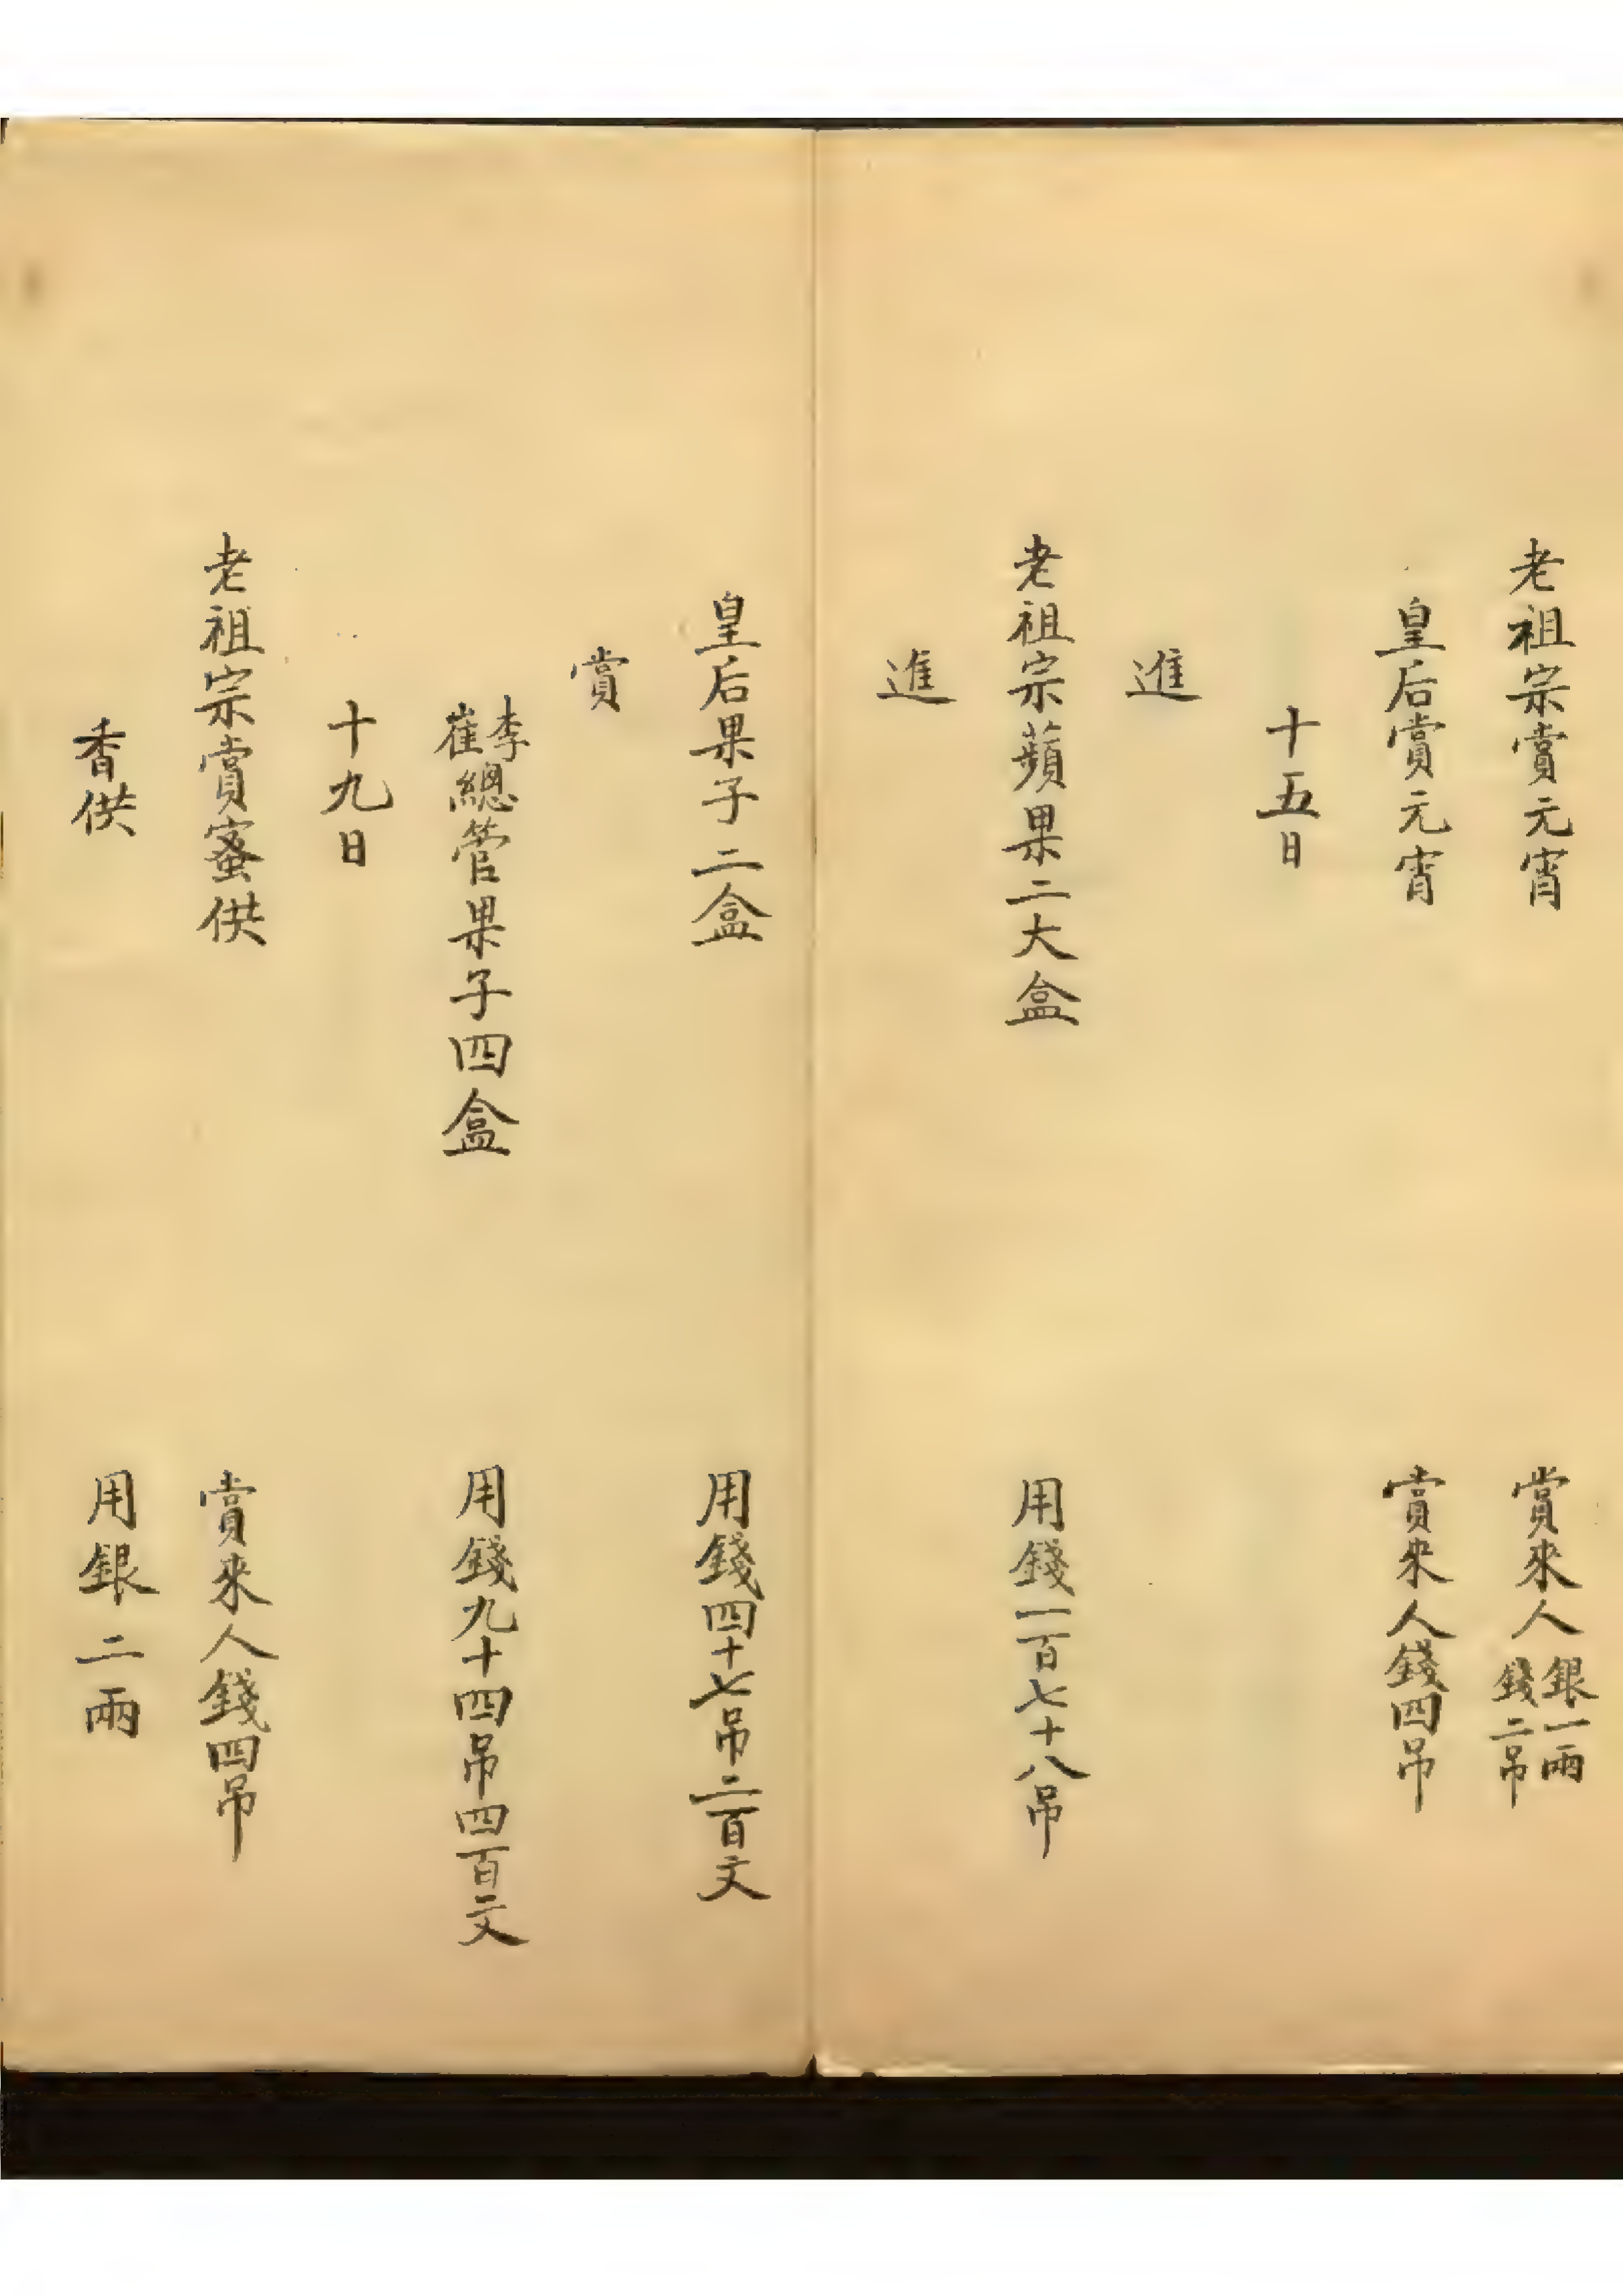 老祖宗賞元宵　賞來人銀一兩錢二吊
皇后賞元宵　賞來人錢四吊
十五日
進
老祖宗蘋果二大盒　用錢一百七十八吊
進
皇后果子二盒　用錢四十七吊二百文
賞
李崔總管果子四盒　用錢九十四吊四百文
十九日
老祖宗賞蜜供　賞來人錢四吊
香供　用銀二兩